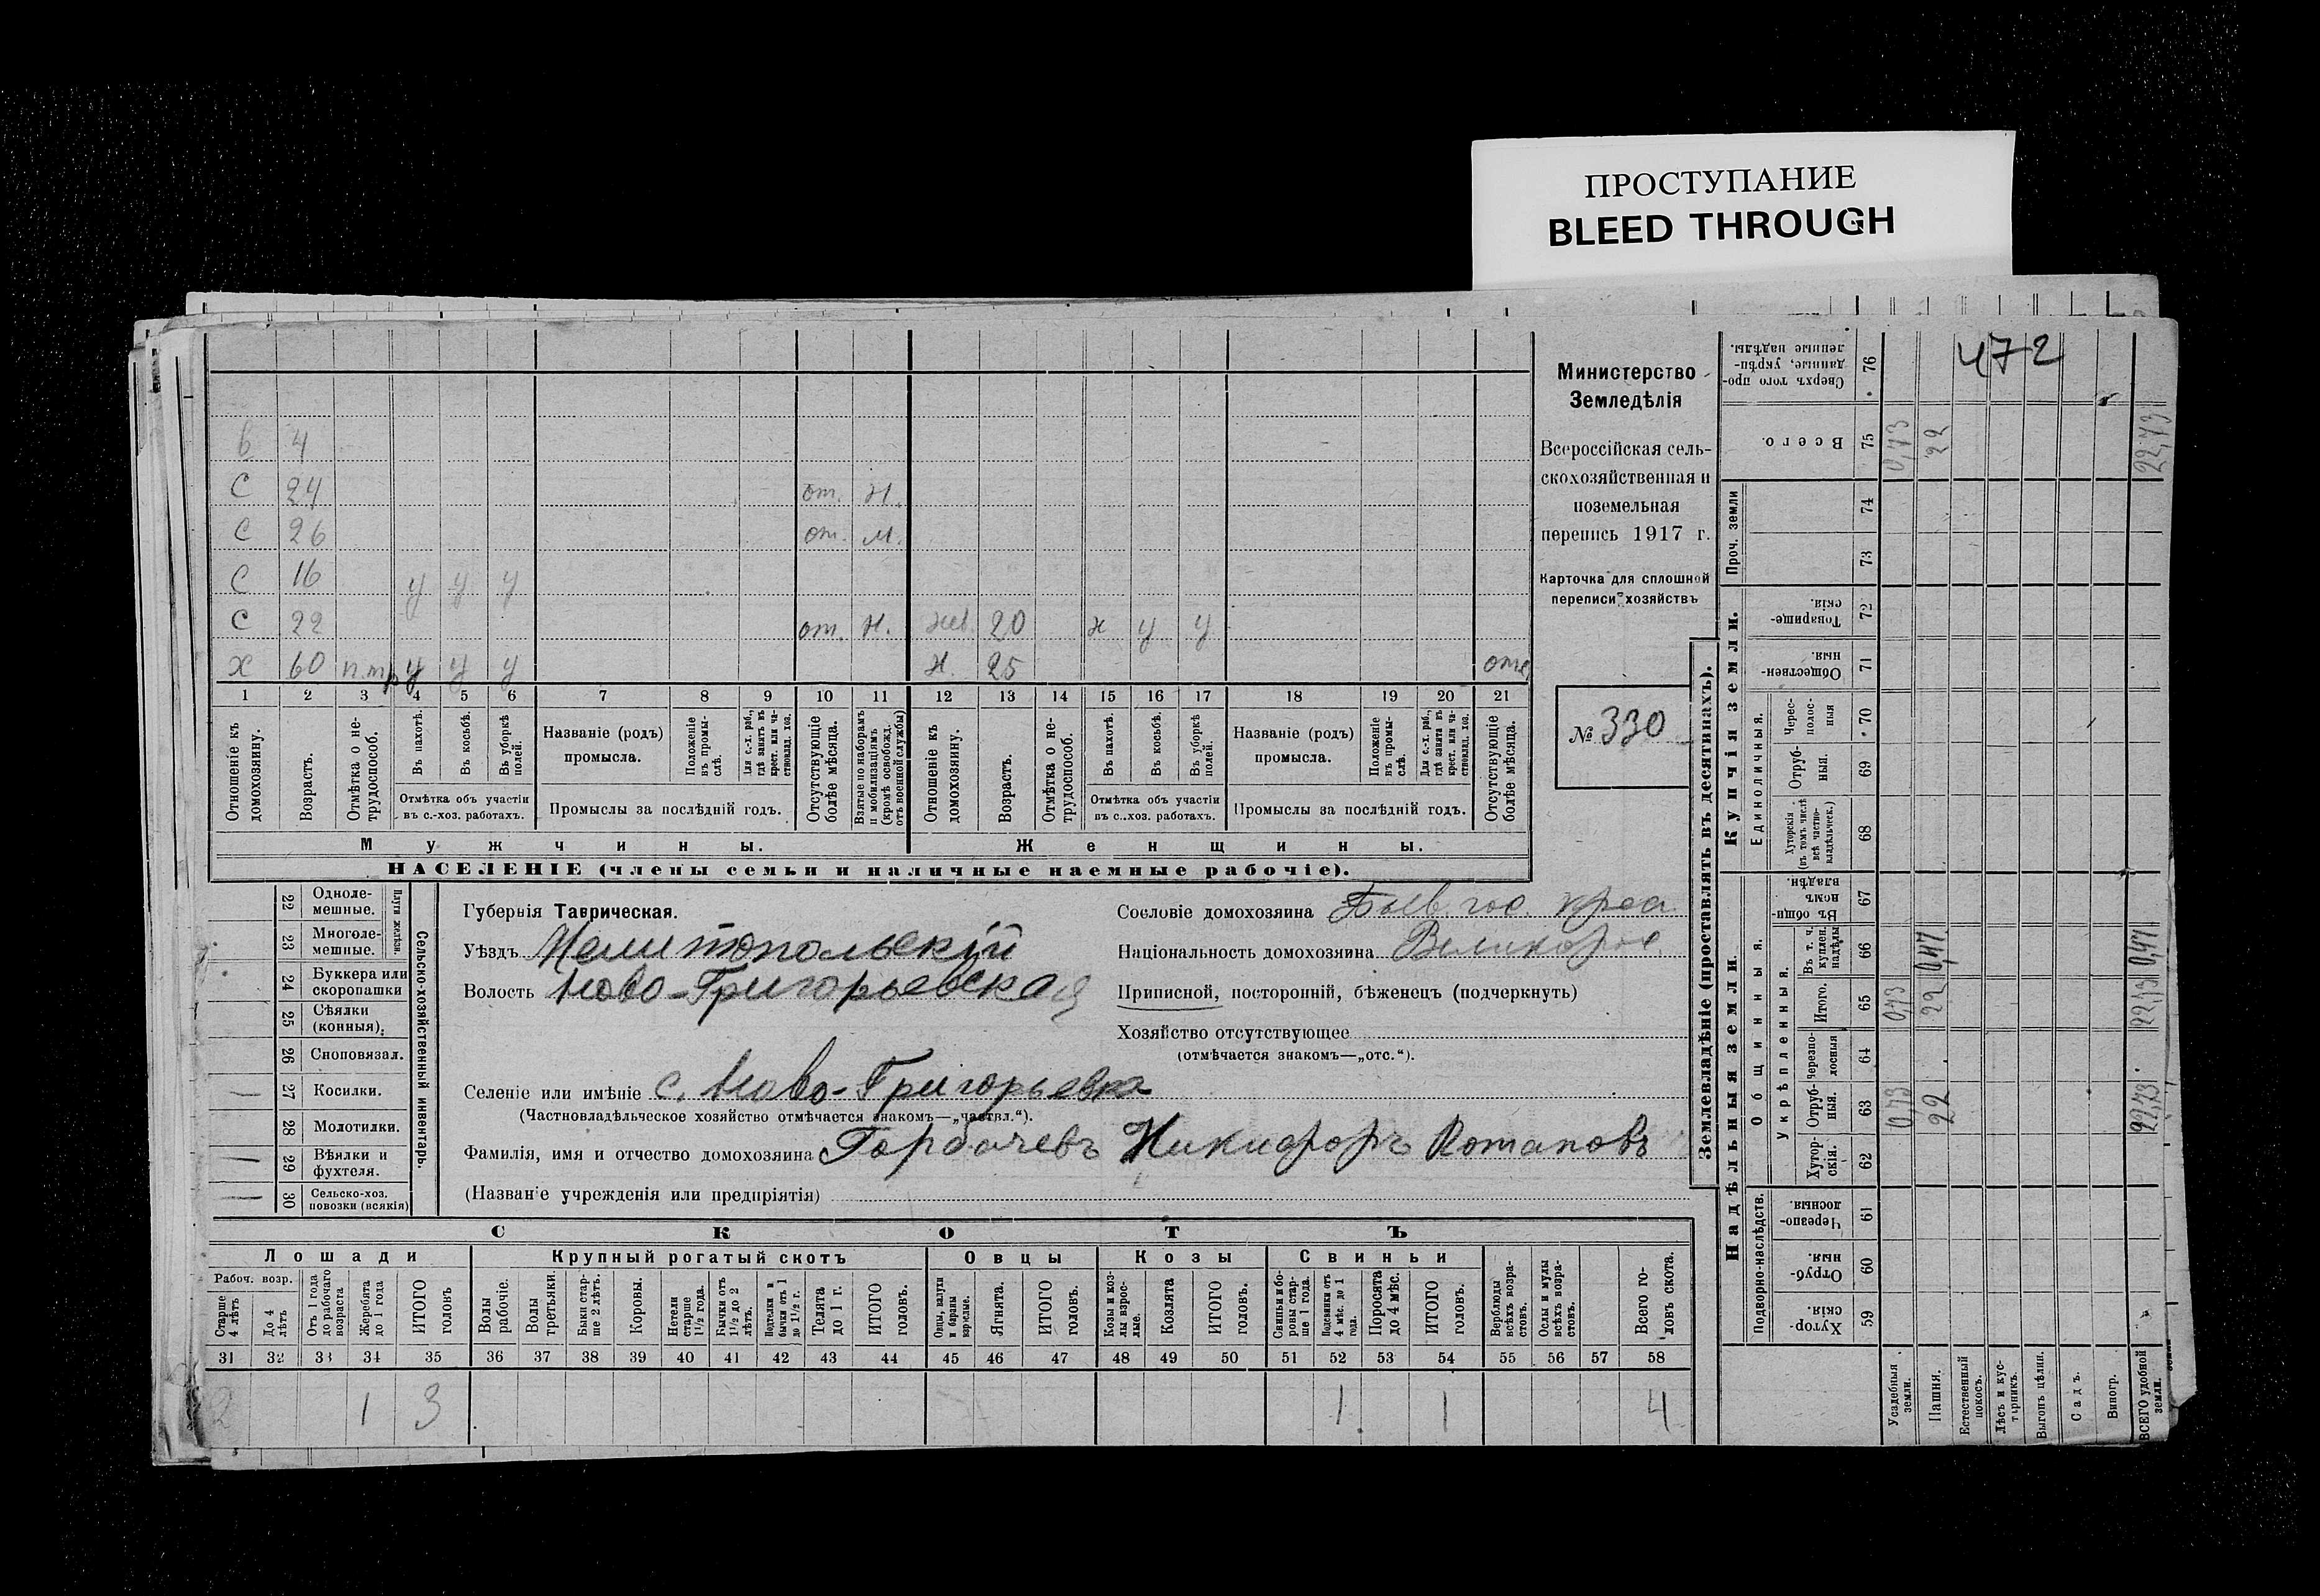 ПРОСТУПАНИЕ
BLEED THROUGH
472
Министерство
Земледѣлія
Всероссійская сель-
скохозяйственная и
поземельная
перепись 1917 г.
Карточка для сплошной
переписи хозяйствъ
№ 330
в 4
С 24 от. Н.
С 26 от. М.
С 16 у у у
С 22 от. Н. 20 н у у
х 60 п.тр у у у Н. 25 отс
1 2 3 4 5 6 7 8 9 10 11 12 13 14 15 16 17 18 19 20 21
Отношеніе къ домохозяину.
Возрастъ.
Отмѣтка о не-трудоспособ.
Въ пахотѣ.
Въ косьбѣ.
Въ уборкѣ полей.
Отмѣтка объ участіи
въ с.-хоз. работахъ.
Названіе (родъ)
промысла.
Положеніе въ промы-слѣ.
Для с.-х. раб., гдѣ занятъ въ крест. или ча-стновлад. хоз.
Промыслы за послѣдній годъ.
Отсутствующіе болѣе мѣсяца.
Взятые по наборамъ и мобилизаціямъ (кромѣ освобожд. отъ военной службы)
Отношеніе къ домохозяину.
Возрастъ.
Отмѣтка о не-трудоспособ.
Въ пахотѣ.
Въ косьбѣ.
Въ уборкѣ полей.
Отмѣтка объ участіи
въ с.-хоз. работахъ.
Названіе (родъ)
промысла.
Положеніе въ промы-слѣ.
Для с.-х. раб., гдѣ занята въ крест. или ча-стновлад. хоз.
Промыслы за послѣдній годъ.
Отсутствующіе болѣе мѣсяца.
Мужчины.
Женщины.
НАСЕЛЕНІЕ (члены семьи и наличные наемные рабочіе).
22 Одноле-мешные.
23 Многоле-мешные.
Плуги желѣзн.
24 Буккера или скоропашки
25 Сѣялки (конныя).
26 Сноповязал.
27 Косилки.
28 Молотилки.
29 Вѣялки и фухтеля.
30 Сельско-хоз. повозки (всякія)
Сельско-хозяйственный инвентарь.
Губернія Таврическая.
Уѣздъ Мелитопольскій
Волость Ново-Григорьевская
Селеніе или имѣніе с. Ново-Григорьевка
(Частновладѣльческое хозяйство отмѣчается знакомъ—„частвл.“).
Фамилія, имя и отчество домохозяина Горбачевъ Никифоръ Потаповъ
(Названіе учрежденія или предпріятія)
Сословіе домохозяина Быв. гос. крес
Національность домохозяина Великорос.
Приписной, посторонній, бѣженецъ (подчеркнуть)
Хозяйство отсутствующее
(отмѣчается знакомъ—„отс.“).
СКОТЪ
Лошади
Крупный рогатый скотъ
Овцы
Козы
Свиньи
Рабоч. возр.
Старше 4 лѣтъ
До 4 лѣтъ
Отъ 1 года до рабочаго возраста
Жеребята до 1 года
ИТОГО головъ
Волы рабочіе.
Волы третьяки.
Быки стар-ше 2 лѣтъ.
Коровы.
Нетели старше 1½ года.
Бычки отъ 1½ до 2 лѣтъ.
Подтелки и бычки отъ 1 до 1½ г.
Телята до 1 г.
ИТОГО головъ.
Овцы, валухи и бараны взрослые.
Ягнята.
ИТОГО головъ.
Козы и коз-лы взрос-лые.
Козлята
ИТОГО головъ.
Свиньи и бо-ровы стар-ше 1 года.
Подсвинки отъ 4 мѣс. до 1 года.
Поросята до 4 мѣс.
ИТОГО головъ.
Верблюды всѣхъ возра-стовъ.
Ослы и мулы всѣхъ возра-стовъ.
Всего го-ловъ скота.
31 32 33 34 35 36 37 38 39 40 41 42 43 44 45 46 47 48 49 50 51 52 53 54 55 56 57 58
2 1 3 1 1 4
Землевладѣніе (проставлять въ десятинахъ).
Надѣльныя земли.
Купчія земли.
Проч. земли
Подворно-наслѣдств.
Общинныя.
Укрѣпленныя.
Единоличныя.
Хутор-скія. 59
Отруб-ныя. 60
Черезпо-лосныя 61
Хутор-скія. 62
Отруб-ныя. 63
Черезпо-лосныя 64
Итого. 65
Въ т. ч. куплен. надѣлы 66
Въ общи-номъ владѣн. 67
Хуторскія (въ томъ числѣ всѣ частно-владѣльческ.) 68
Отруб-ныя. 69
Черес-полос-ныя 70
Обществен-ныя. 71
Товарище-скія. 72
73
74
Всего. 75
Сверхъ того про-данные, укрѣп-ленные надѣлы. 76
Усадебныя земли. 0,73 0,73 0,73
Пашня. 22 22 0,47 22
Естественный покосъ.
Лѣсъ и кус-тарникъ.
Выгонъ цѣлин.
Садъ.
Виногр.
ВСЕГО удобной земли. 22,73 22,73 0,47 22,73